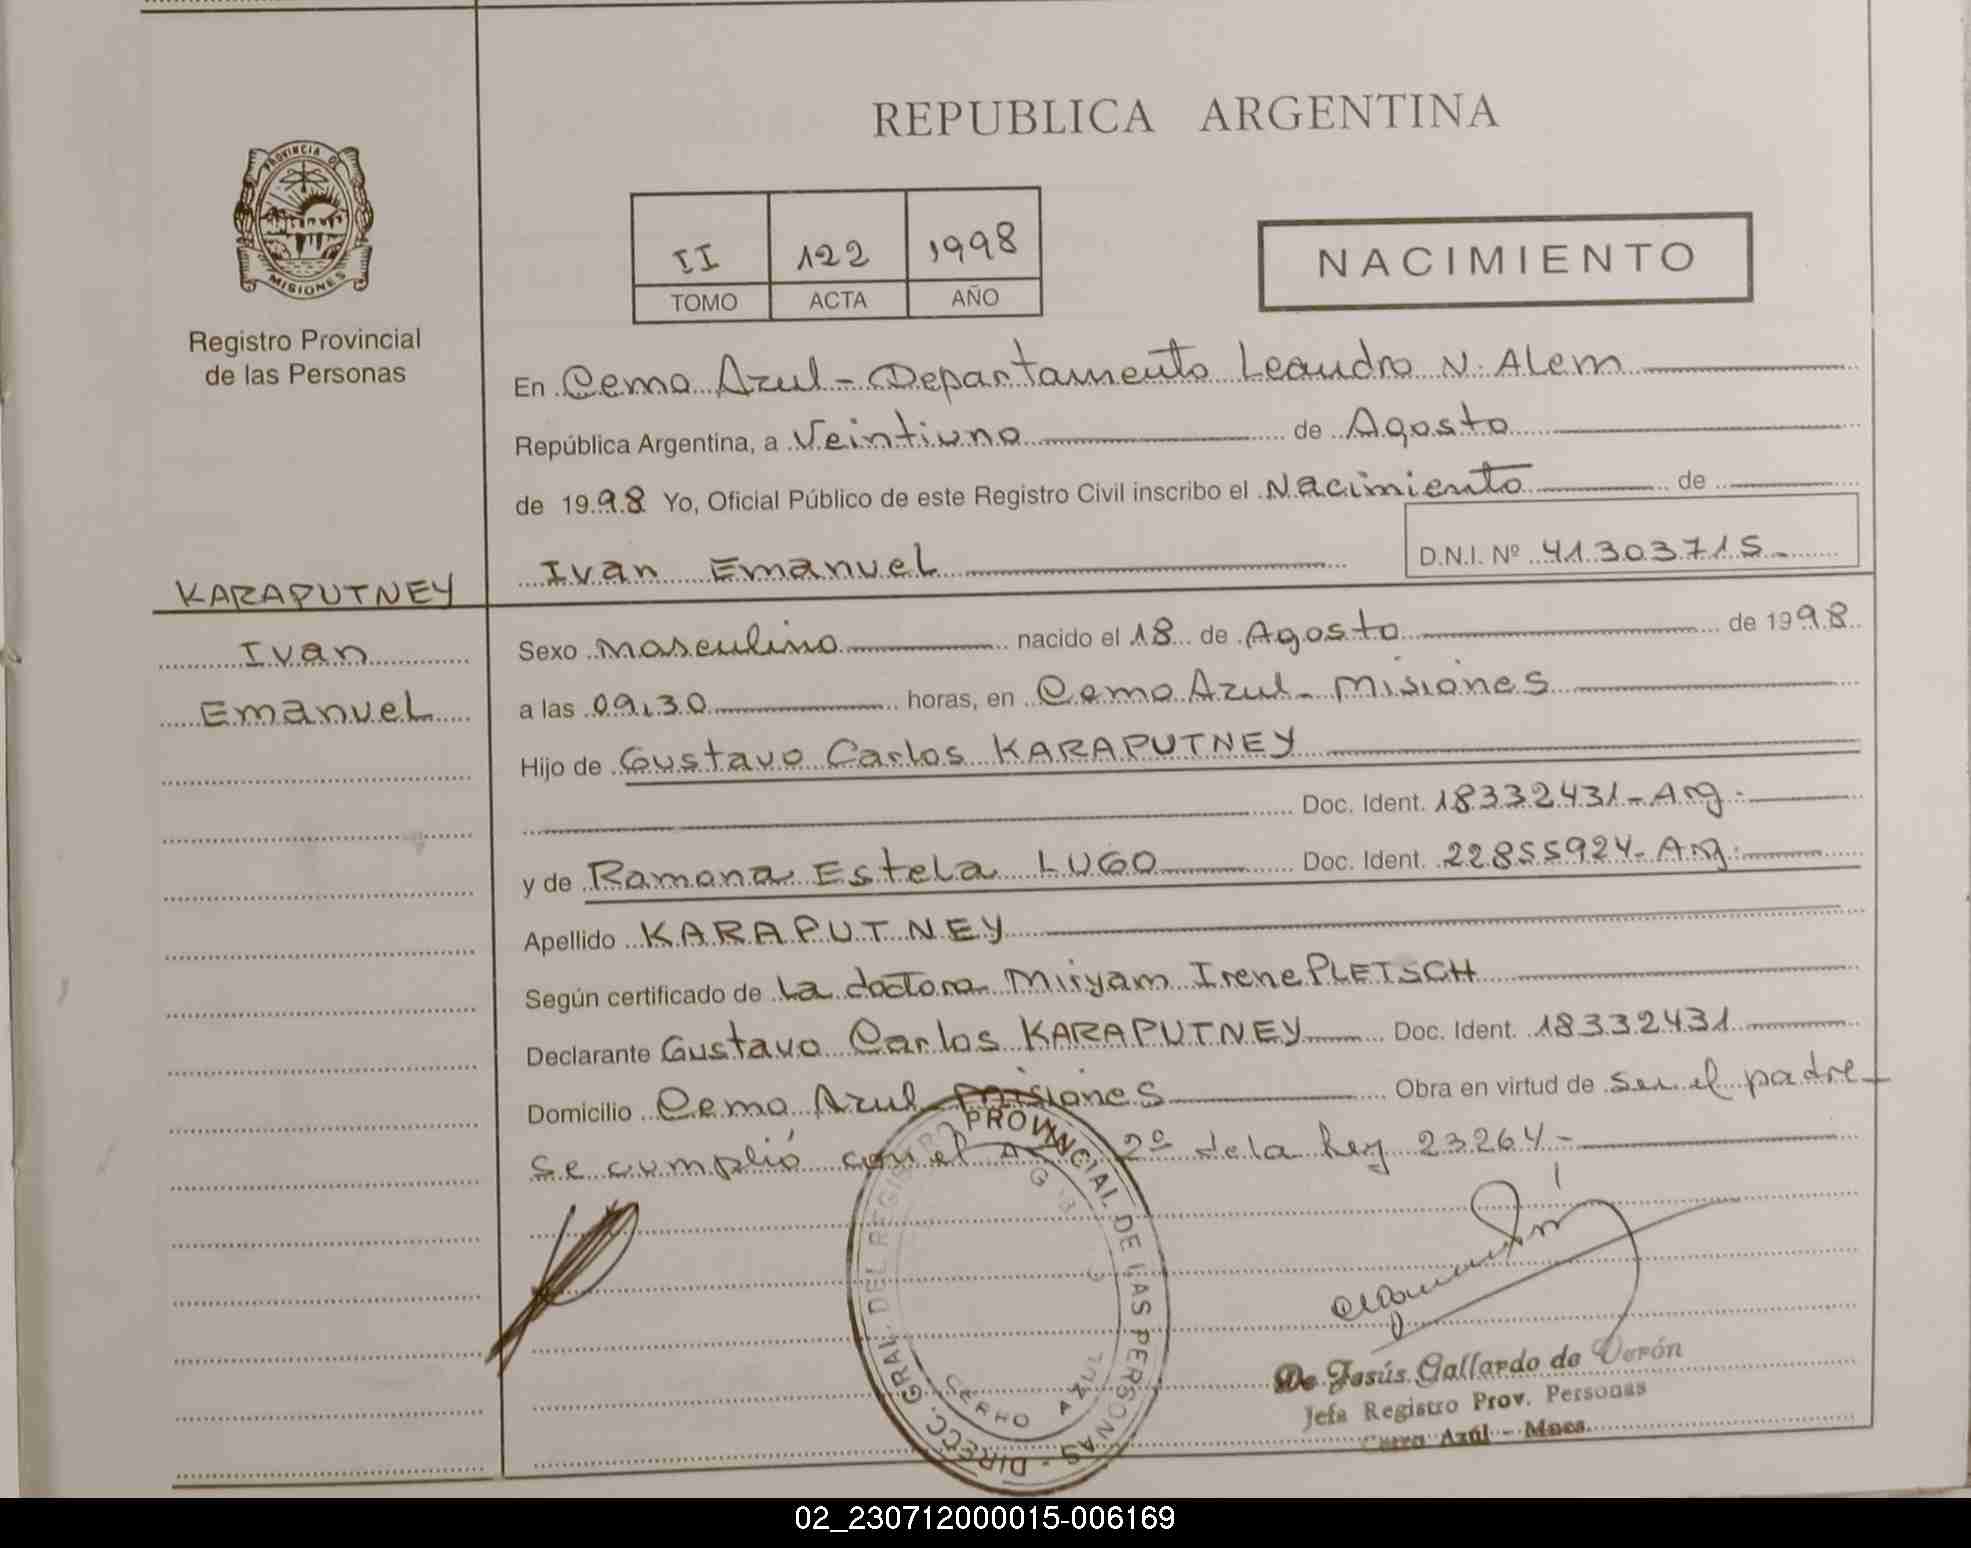 REPUBLICA ARGENTINA
PROVINCIA DE
MISIONES
Registro Provincial
de las Personas
II 122 1998
TOMO ACTA AÑO
NACIMIENTO
En Cerro Azul - Departamento Leandro N. Alem
República Argentina, a Veintiuno de Agosto
de 1998 Yo, Oficial Público de este Registro Civil inscribo el Nacimiento de
Ivan Emanuel D.N.I. Nº 41303715-
KARAPUTNEY
Ivan
Emanuel
Sexo masculino nacido el 18 de Agosto de 1998
a las 09,30 horas, en Cerro Azul - Misiones
Hijo de Gustavo Carlos KARAPUTNEY
Doc. Ident. 18332431-Arg.
y de Ramona Estela LUGO Doc. Ident. 22855924-Arg.
Apellido KARAPUTNEY
Según certificado de la doctora Miryam Irene PLETSCH
Declarante Gustavo Carlos KARAPUTNEY Doc. Ident. 18332431
Domicilio Cerro Azul Misiones Obra en virtud de ser el padre
Se cumplió con el Ar 2º de la ley 23264-
DIRECC. GRAL. DEL REGISTRO PROVINCIAL DE LAS PERSONAS -
CERRO AZUL
De Jesús Gallardo de Verón
Jefa Registro Prov. Personas
Cerro Azúl - Mnes.
02_230712000015-006169